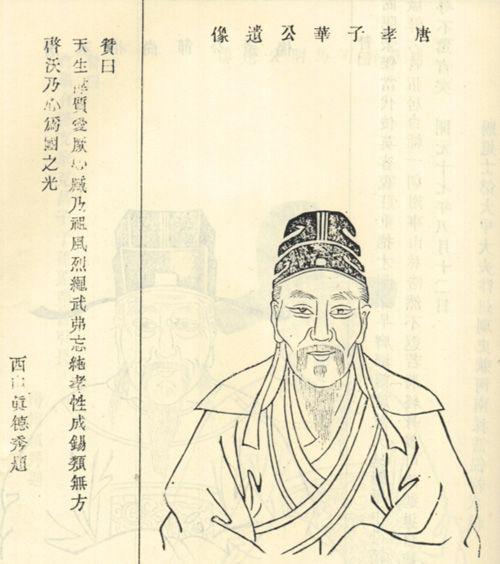 唐孝子華公遺像
贊曰
天生質愛厥心臧乃祖風烈繩武弗忘純孝性成錫類無方
啓沃乃心爲國之光
西山眞德秀題